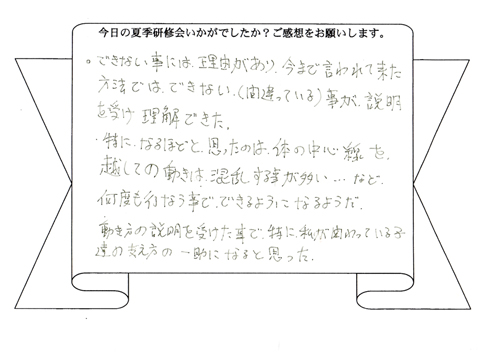 今日の夏季研修会いかがでしたか？ご感想をお願いします。
。できない事には、理由があり、今まで言われて来た
方法では、できない、(間違っている)事が、説明
を受け 理解できた。
・特に、なるほどと、思ったのは、体の中心線を、
越しての動きは、混乱する事が多い… など、
何度も行なう事で、できるようになるようだ。
動き方の説明を受けた事で、特に、私が関わっている子
達の支え方の一助になると思った。